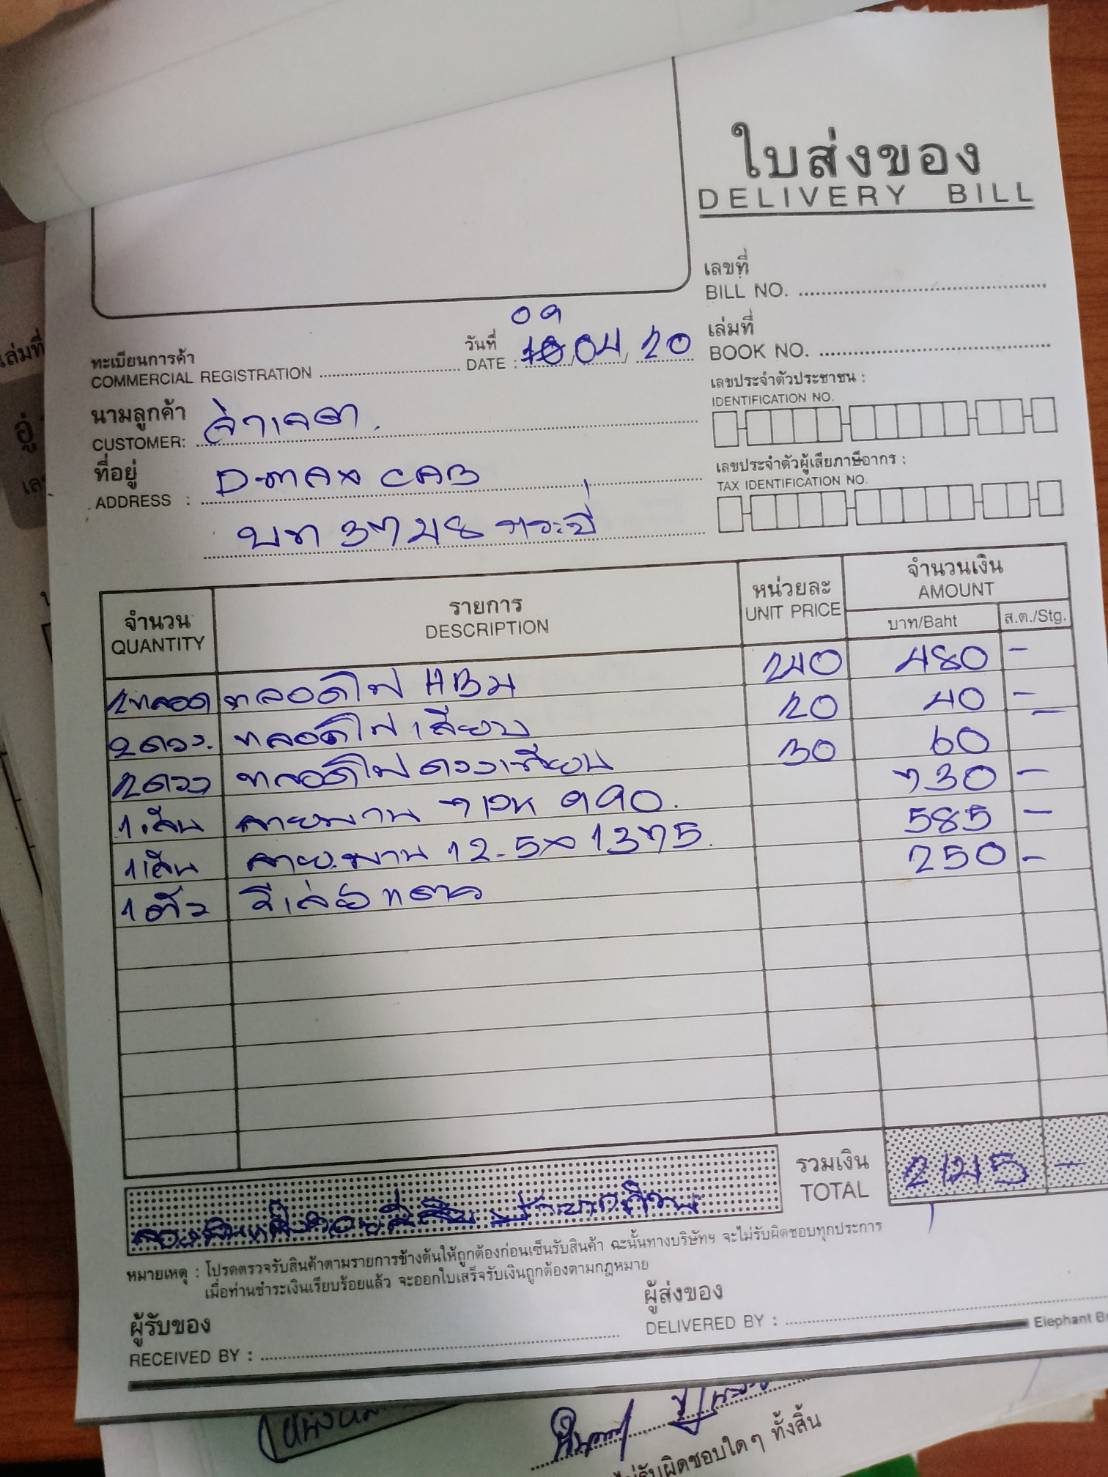 ใบส่งของ
DELIVERY BILL
เลขที่
BILL NO.
09
วันที่
DATE : 10 04 20
เล่มที่
BOOK NO.
ทะเบียนการค้า
COMMERCIAL REGISTRATION
เลขประจำตัวประชาชน :
IDENTIFICATION NO.
นามลูกค้า
CUSTOMER:
ที่อยู่
ADDRESS : D-max CAB
เลขประจำตัวผู้เสียภาษีอากร :
TAX IDENTIFICATION NO.
จำนวน รายการ หน่วยละ จำนวนเงิน
QUANTITY DESCRIPTION UNIT PRICE AMOUNT
บาท/Baht ส.ต./Stg.
2หลอด หลอดไฟ 240 480 -
2ดวง. หลอดไฟเสียบ 20 40 -
2ดวง หลอดไฟ 30 60 -
1เส้น สายพาน 990. 730 -
1เส้น สายพาน 12.5x1375. 585 -
1ตัว รีเลย์ 250 -
รวมเงิน
TOTAL 2145 -
หมายเหตุ : โปรดตรวจรับสินค้าตามรายการข้างต้นให้ถูกต้องก่อนเซ็นรับสินค้า ฉะนั้นทางบริษัทฯ จะไม่รับผิดชอบทุกประการ
เมื่อท่านชำระเงินเรียบร้อยแล้ว จะออกใบเสร็จรับเงินถูกต้องตามกฎหมาย
ผู้รับของ
RECEIVED BY :
ผู้ส่งของ
DELIVERED BY :
Elephant
รับผิดชอบใดๆ ทั้งสิ้น